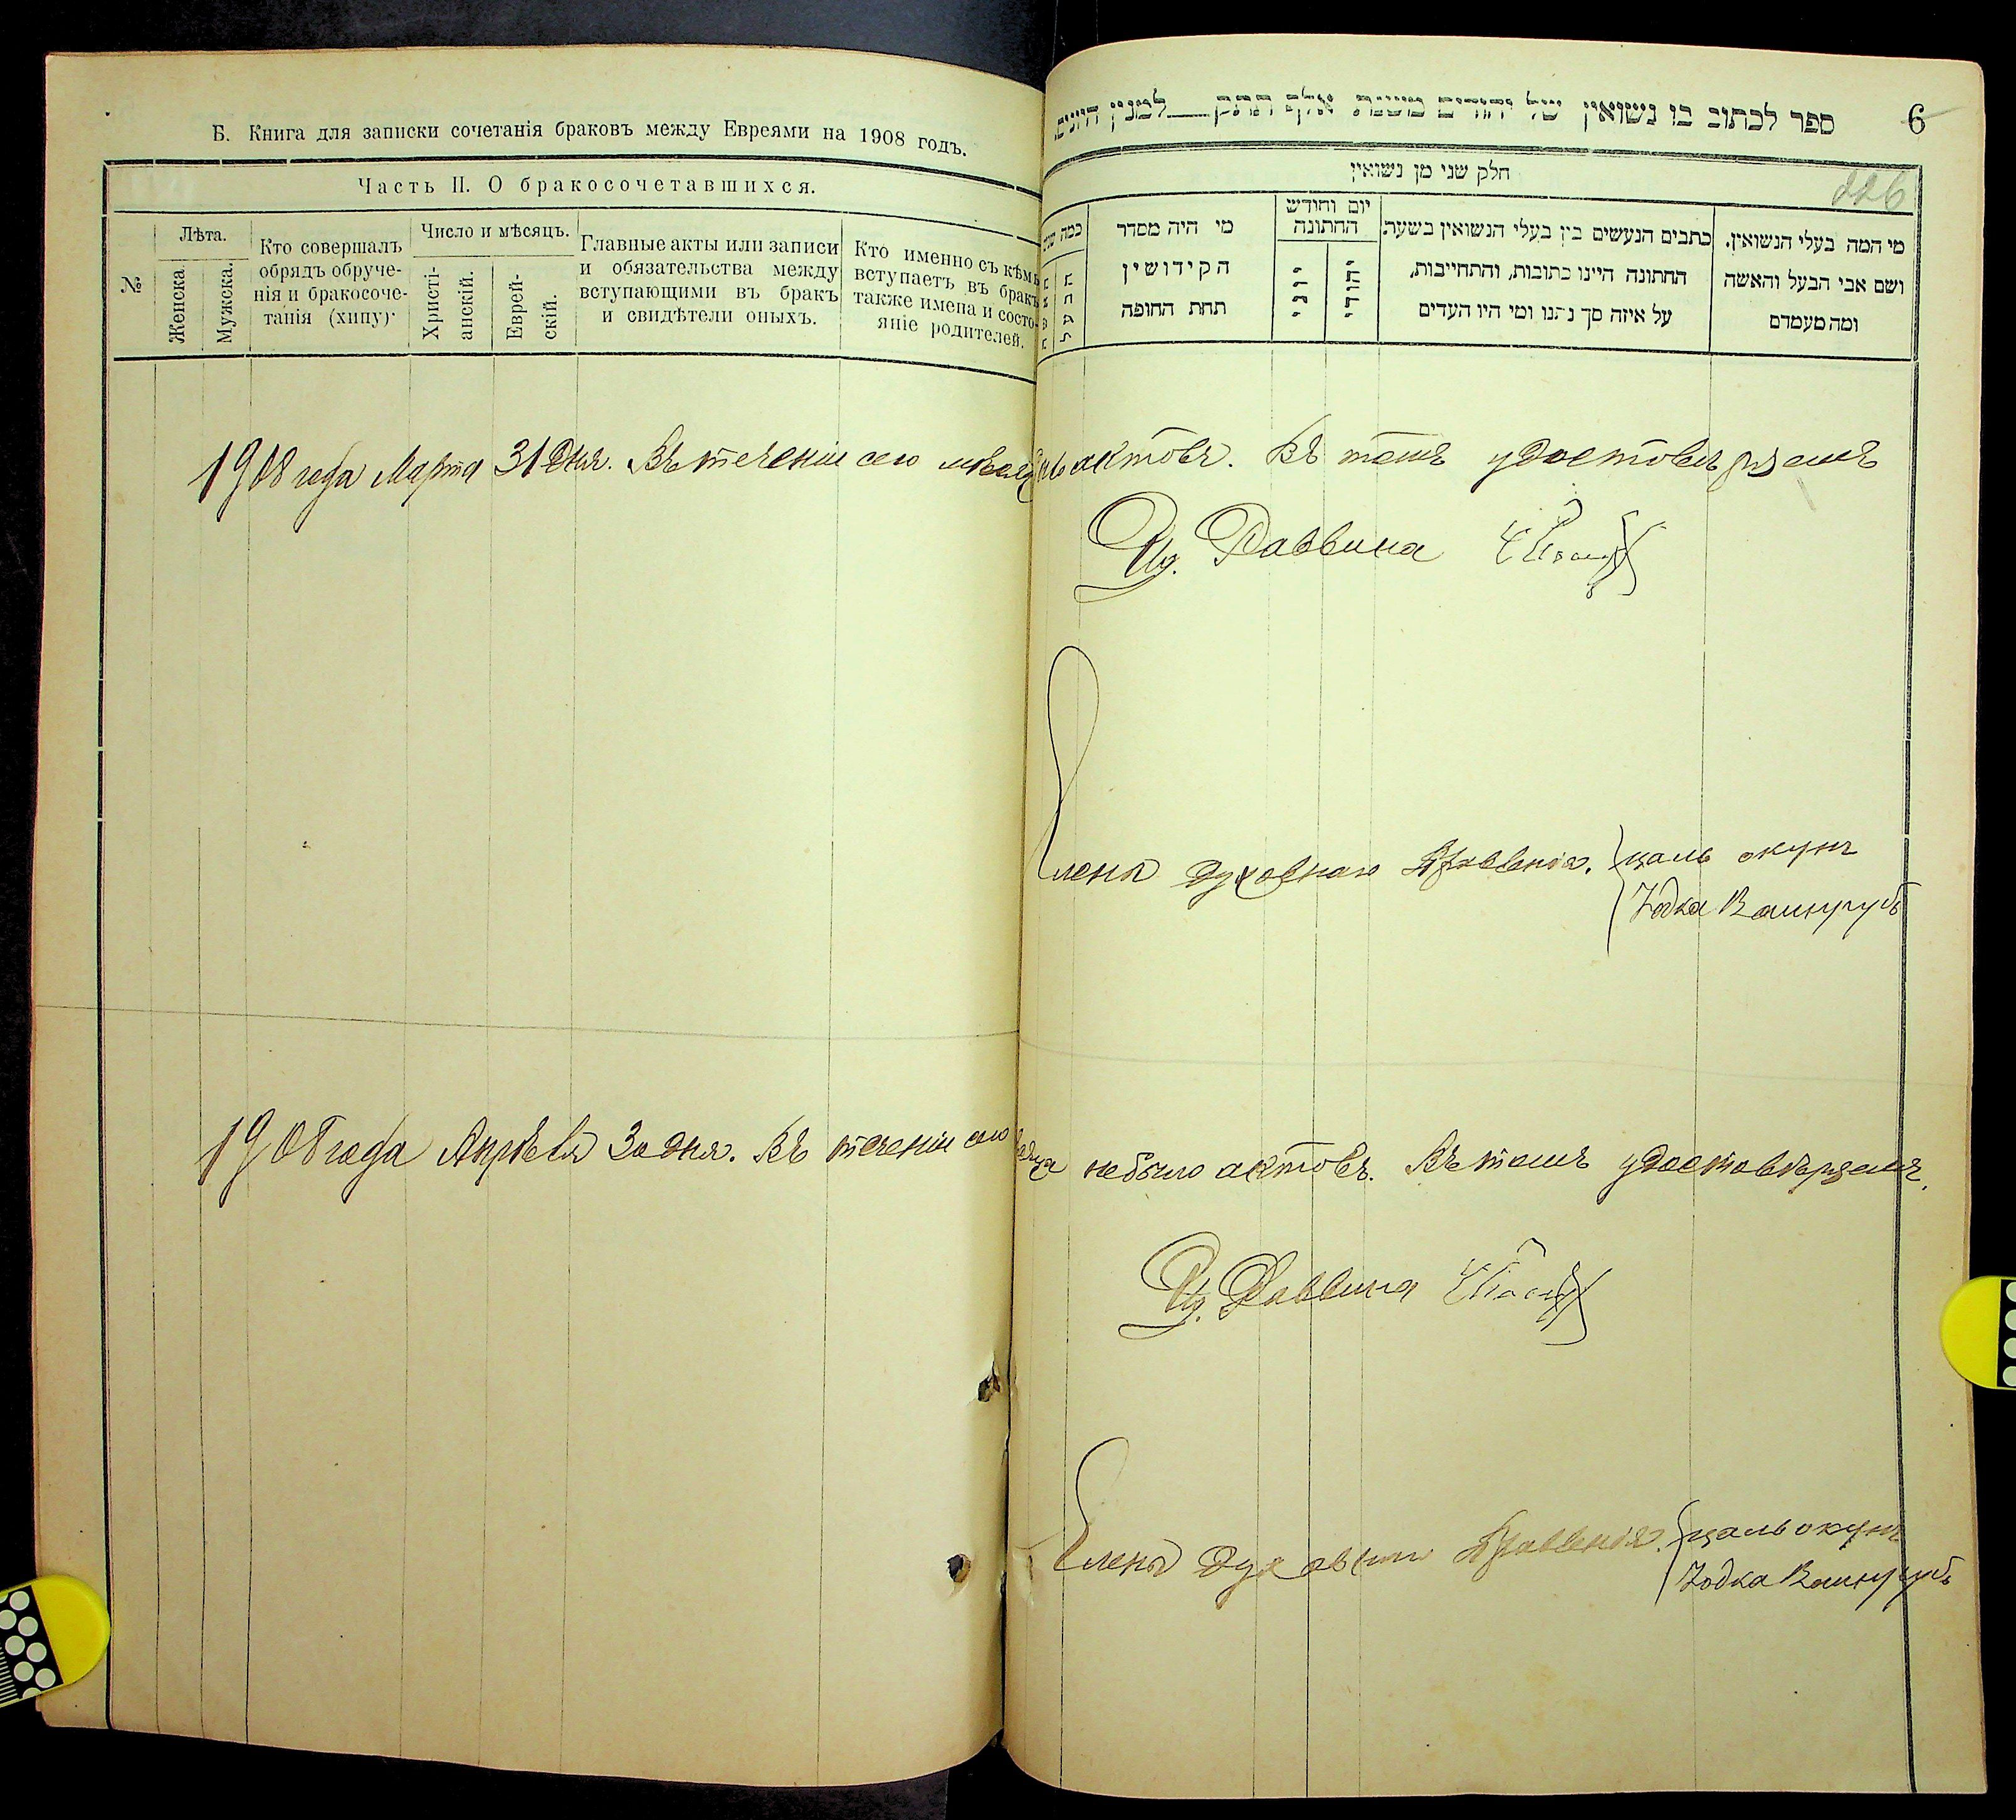 Б. Книга для записки сочетанія браковъ между Евреями на 1908 годъ.
Часть II. О бракосочетавшихся.
№
Лѣта.
Женска.
Мужска.
Кто совершалъ
обрядъ обруче-
нія и бракосоче-
танія (хипу)
Число и мѣсяцъ.
Христі-
анскій.
Еврей-
скій.
Главные акты или записи
и обязательства между
вступающими въ бракъ
и свидѣтели оныхъ.
Кто именно съ кѣмъ
вступаетъ въ бракъ
также имена и состо-
яніе родителей.
6
ספר לכתוב בו נשואין של יהודים משנת אלף תתק למנין היונים
226
חלק שני מן נשואין
מי המה בעלי הנשואין,
ושם אבי הבעל והאשה
ומה מעמדם
כתבים הנעשים בין בעלי הנשואין בשעת
החתונה היינו כתובות, והתחייבות,
על איזה סך נתנו ומי היו העדים
יום וחודש
החתונה
יהודי
יוני
מי היה מסדר
הקידושין
תחת החופה
כמה
1908 года Марта 31 дня. Въ теченіи сего актовъ. Въ томъ удостовѣряемъ
И.д. Раввина
Члены духовнаго Правленія.
цаль окунь
Іодка
1908 года Апрѣля 30 дня. Въ теченіи сего небыло актовъ. Въ томъ удостовѣряемъ.
И.д. Раввина
Члены духовнаго Правленія.
цаль окунь
Іодка